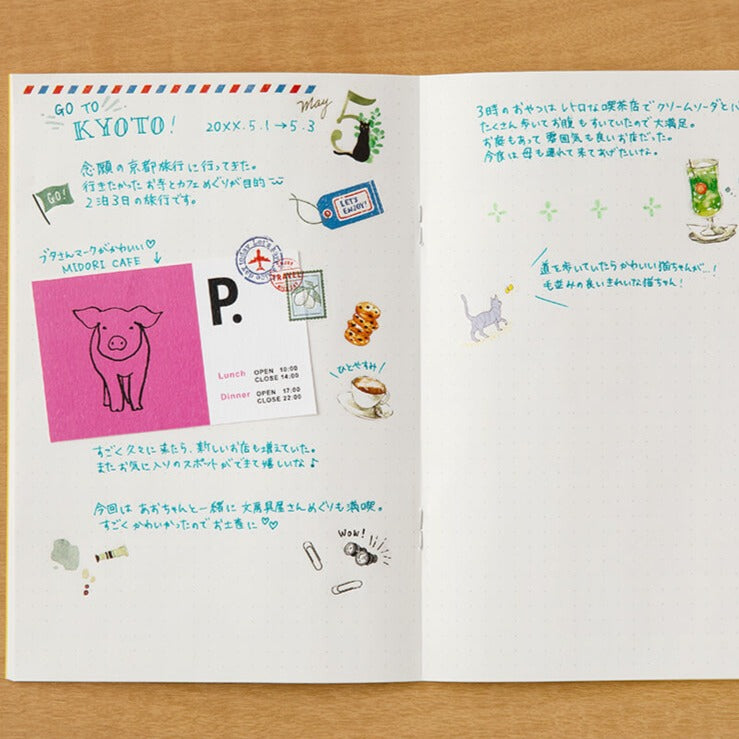 GO TO
KYOTO!
20XX.5.1→5.3
May
5
念願の京都旅行に行ってきた。
行きたかったお寺とカフェめぐりが目的
2泊3日の旅行です。
GO!
LET'S
ENJOY!
ブタさんマークがかわいい♡
MIDORI CAFE ↓
TRAVEL
P.
Lunch OPEN 10:00
CLOSE 14:00
Dinner OPEN 17:00
CLOSE 22:00
ひとやすみ
すごく久々に来たら、新しいお店も増えていた。
またお気に入りのスポットができて嬉しいな♪
今回は あおちゃんと一緒に 文房具屋さんめぐりも満喫。
すごくかわいかったのでお土産に♡♡
Wow!
3時のおやつは レトロな喫茶店で クリームソーダと
たくさん歩いてお腹もすいていたので大満足。
お庭もあって 雰囲気も良いお店だった。
今度は 母も連れて来てあげたいな。
道を歩いていたら かわいい猫ちゃんが…!
毛並みの良い きれいな猫ちゃん!